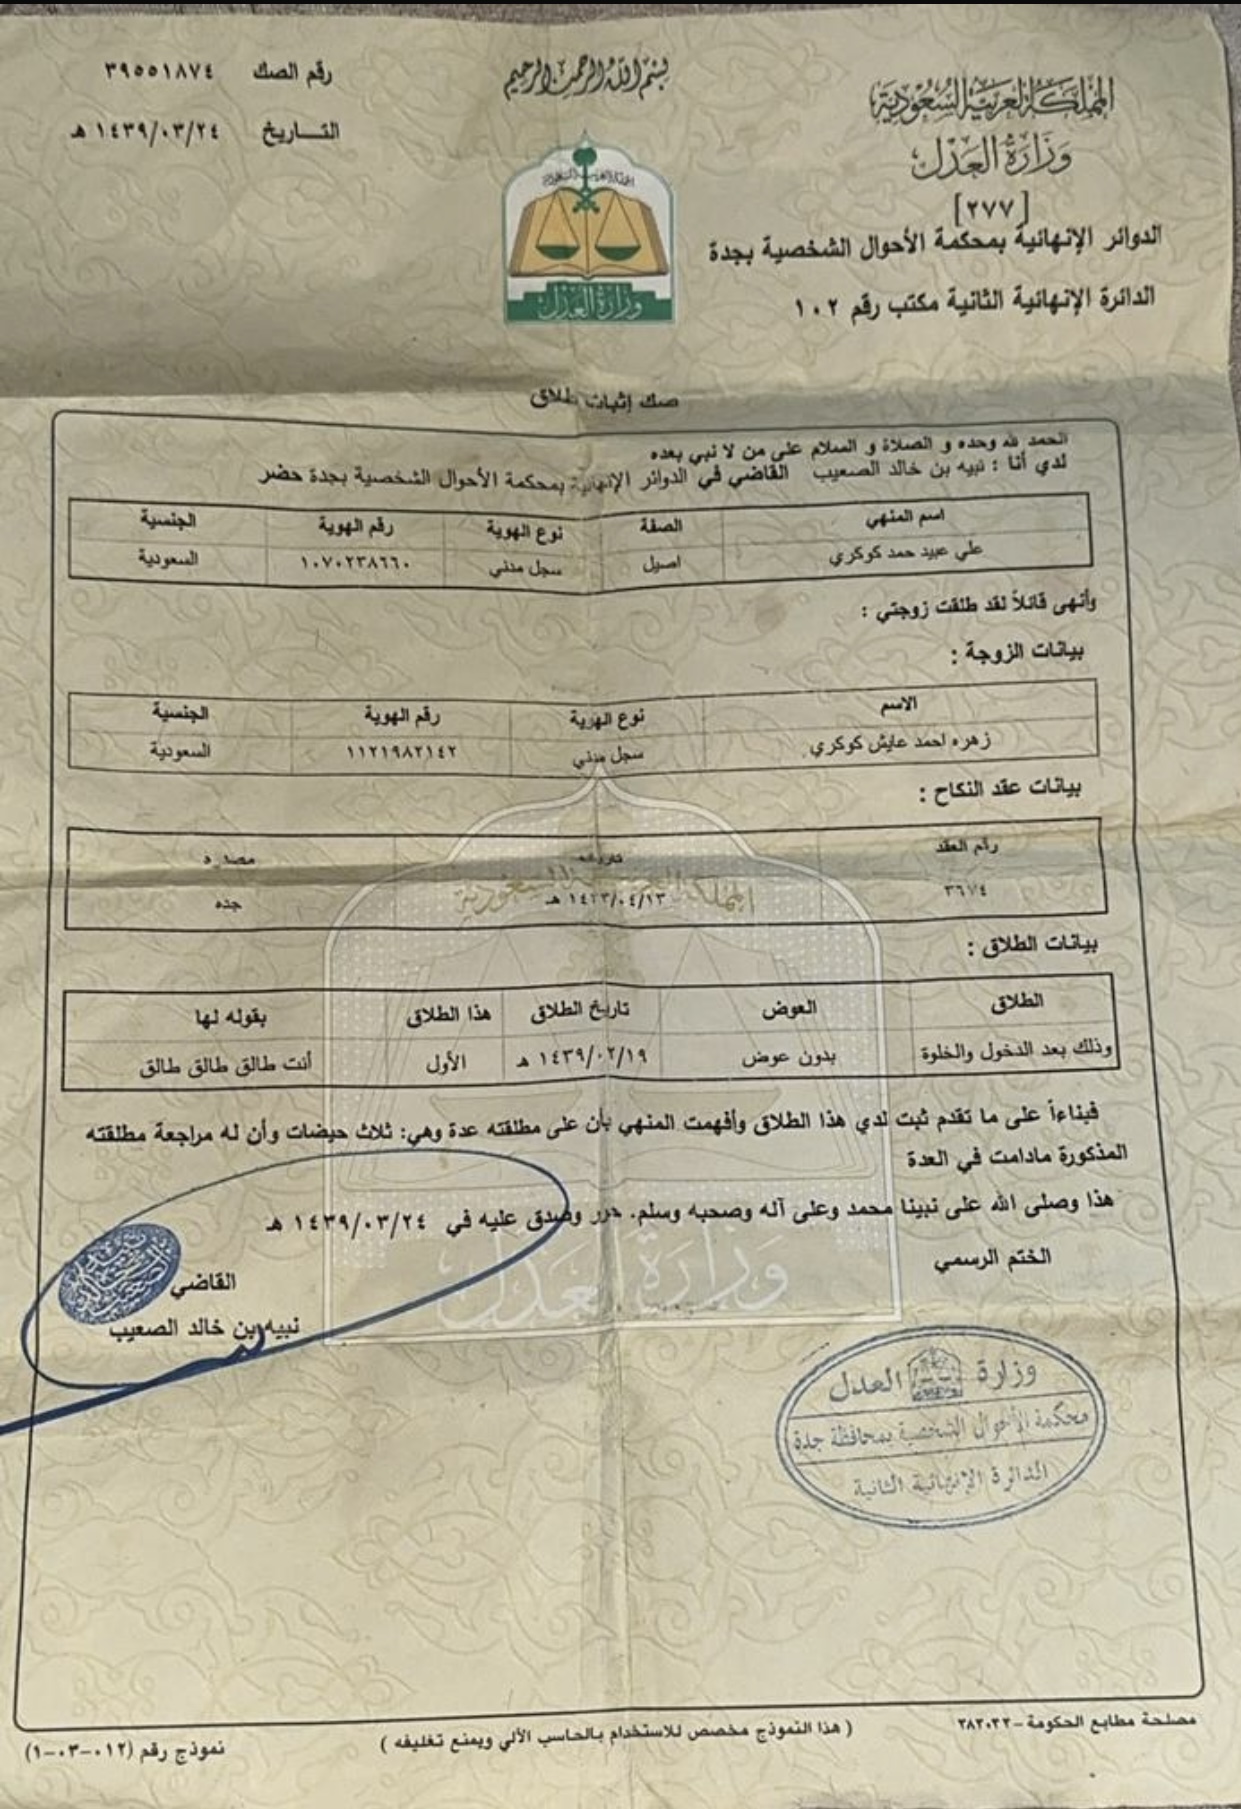 بسم الله الرحمن الرحيم
المملكة العربية السعودية
وزارة العدل
[٢٧٧]
الدوائر الإنهائية بمحكمة الأحوال الشخصية بجدة
الدائرة الإنهائية الثانية مكتب رقم ١٠٢
رقم الصك ٣٩٥٥١٨٧٤
التـــاريخ ١٤٣٩/٠٣/٢٤ هـ
وزارة العدل
صك إثبات طلاق
الحمد لله وحده و الصلاة و السلام على من لا نبي بعده
لدي أنا : نبيه بن خالد الصعيب القاضي في الدوائر الإنهائية بمحكمة الأحوال الشخصية بجدة حضر
اسم المنهي الصفة نوع الهوية رقم الهوية الجنسية
علي عبيد حمد كوكري اصيل سجل مدني ١٠٧٠٢٣٨٦٦٠ السعودية
وأنهى قائلاً لقد طلقت زوجتي :
بيانات الزوجة :
الاسم نوع الهوية رقم الهوية الجنسية
زهره احمد عايش كوكري سجل مدني ١١٢١٩٨٢١٤٢ السعودية
بيانات عقد النكاح :
رقم العقد تاريخه مصدره
٣٦٧٤ ١٤٣٣/٠٤/١٣ هـ جده
بيانات الطلاق :
الطلاق العوض تاريخ الطلاق هذا الطلاق بقوله لها
وذلك بعد الدخول والخلوة بدون عوض ١٤٣٩/٠٢/١٩ هـ الأول أنت طالق طالق طالق
فبناءاً على ما تقدم ثبت لدي هذا الطلاق وأفهمت المنهي بأن على مطلقته عدة وهي: ثلاث حيضات وأن له مراجعة مطلقته
المذكورة مادامت في العدة
هذا وصلى الله على نبينا محمد وعلى آله وصحبه وسلم. حرر وصدق عليه في ١٤٣٩/٠٣/٢٤ هـ
الختم الرسمي
القاضي
نبيه بن خالد الصعيب
وزارة العدل
محكمة الأحوال الشخصية بمحافظة جدة
الدائرة الإنهائية الثانية
مصلحة مطابع الحكومة - ٣٨٣٠٣٣
( هذا النموذج مخصص للاستخدام بالحاسب الآلي ويمنع تغليفه )
نموذج رقم (١٢-٠٣-٠١)